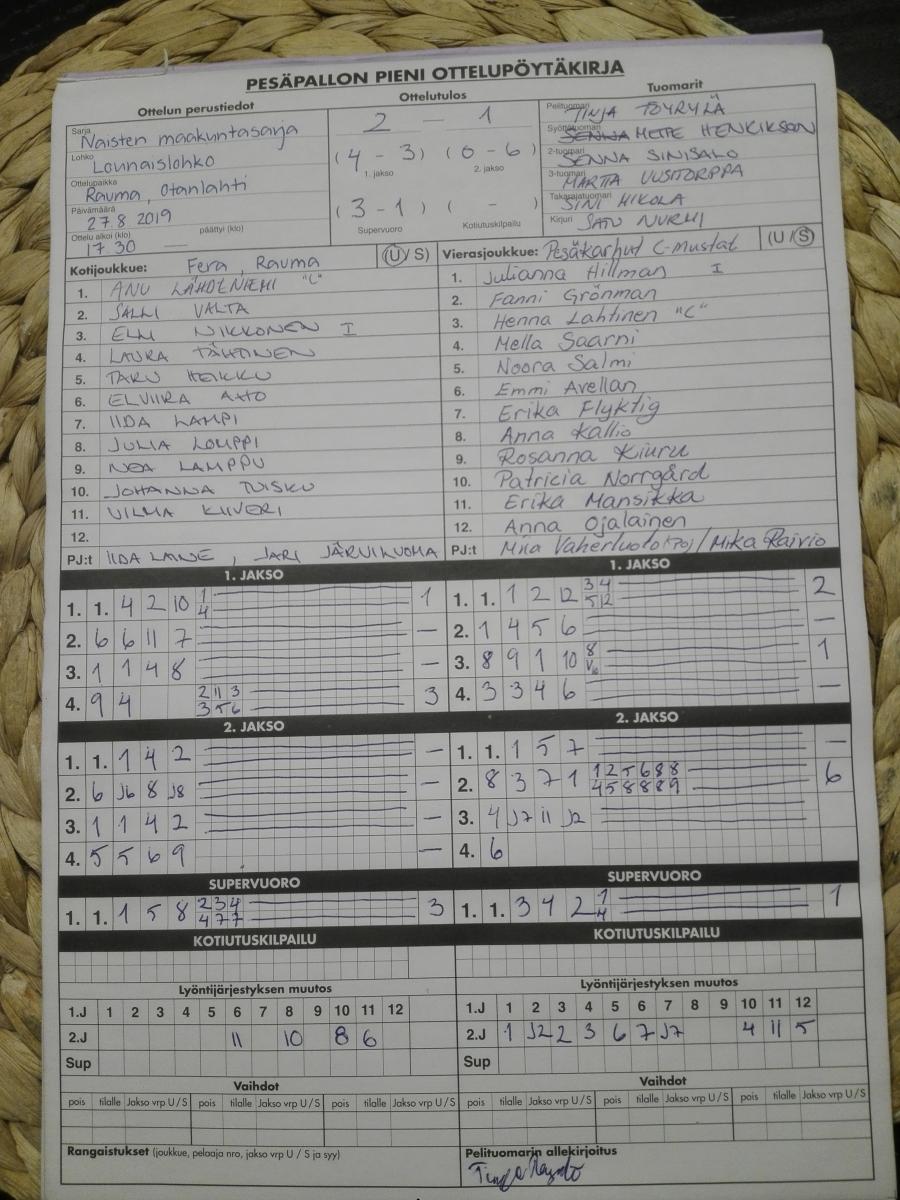 PESÄPALLON PIENI OTTELUPÖYTÄKIRJA
Ottelun perustiedot
Ottelutulos
Tuomarit
Sarja Naisten maakuntasarja
Lohko Lounaislohko
Ottelupaikka Rauma, Otanlahti
Päivämäärä 27.8 2019
Ottelu alkoi (klo) 17.30 päättyi (klo) —
2 — 1
(4 - 3) (0 - 6)
1. jakso 2. jakso
(3 - 1) ( - )
Supervuoro Kotiutuskilpailu
Pelituomari TINJA TÖYRYLÄ
Syöttötuomari METTE HENRIKSSON
2-tuomari SENNA SINISALO
3-tuomari MARTTA UUSITORPPA
Takarajatuomari SINI MIKOLA
Kirjuri SATU NURMI
Kotijoukkue: Fera, Rauma (U / S)
1. ANU LÄHDENIEMI "C"
2. SALLI VALTA
3. ELLI NIKKONEN I
4. LAURA TÄHTINEN
5. TARU HEIKKU
6. ELVIIRA AHO
7. IIDA LAMPI
8. JULIA LOUPPI
9. NEA LAMPPU
10. JOHANNA TUISKU
11. VILMA KIIVERI
12.
PJ:t IIDA LAINE, JARI JÄRVIKUONA
Vierasjoukkue: Pesäkarhut C-mustat (U / S)
1. Julianna Hillman I
2. Fanni Grönman
3. Henna Lahtinen "C"
4. Mella Saarni
5. Noora Salmi
6. Emmi Avellan
7. Erika Flyktig
8. Anna Kallio
9. Rosanna Kiuru
10. Patricia Norrgård
11. Erika Mansikka
12. Anna Ojalainen
PJ:t Miia Vaherluoto (PJ) / Mika Raivio
1. JAKSO
1. 1. 4 2 10 1 1
4
2. 6 6 11 7 —
3. 1 1 4 8 —
4. 9 4 2 11 3 3
3 5 6
1. JAKSO
1. 1. 1 2 12 3 4 2
5 12
2. 1 4 5 6 —
3. 8 9 1 10 8 1
4. 3 3 4 6 —
2. JAKSO
1. 1. 1 4 2 —
2. 6 J6 8 J8 —
3. 1 1 4 2 —
4. 5 5 6 9 —
2. JAKSO
1. 1. 1 5 7 —
2. 8 3 7 1 1 2 5 6 8 8 6
4 5 8 8 8 9
3. 4 J7 11 J2
4. 6
SUPERVUORO
1. 1. 1 5 8 2 3 4 3
4 7 7
SUPERVUORO
1. 1. 3 4 2 1 1
4
KOTIUTUSKILPAILU
KOTIUTUSKILPAILU
Lyöntijärjestyksen muutos
1.J 1 2 3 4 5 6 7 8 9 10 11 12
2.J 11 10 8 6
Sup
Lyöntijärjestyksen muutos
1.J 1 2 3 4 5 6 7 8 9 10 11 12
2.J 1 J2 2 3 6 7 J7 4 11 5
Sup
Vaihdot
pois tilalle Jakso vrp U / S pois tilalle Jakso vrp U / S pois tilalle Jakso vrp U / S
Vaihdot
pois tilalle Jakso vrp U / S pois tilalle Jakso vrp U / S pois tilalle Jakso vrp U / S
Rangaistukset (joukkue, pelaaja nro, jakso vrp U / S ja syy)
Pelituomarin allekirjoitus